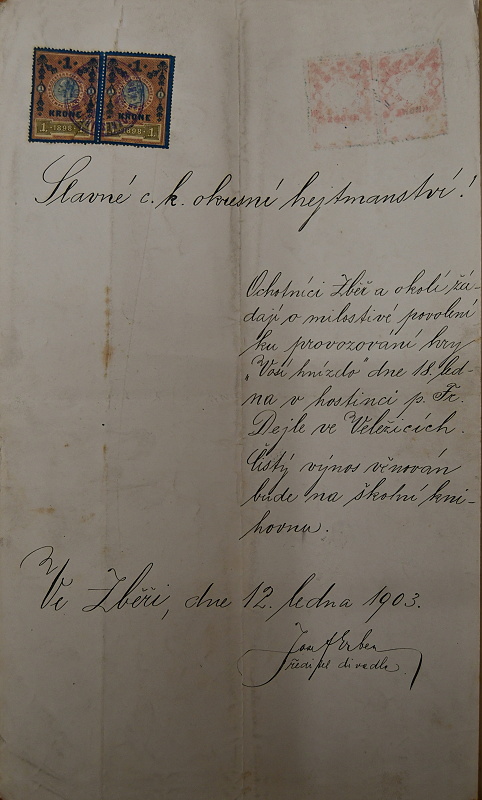 1 1
KRONE KRONE
1. 1898. 1.
Slavné c. k. okresní hejtmanství!
Ochotníci Zběř a okolí žá-
dají o milostivé povolení
ku provozování hry
„Vosí hnízdo" dne 18. led-
na v hostinci p. Fr.
Dejle ve Veležicích.
Čistý výnos věnován
bude na školní kni-
hovnu.
Ve Zběři, dne 12. ledna 1903.
Jos. Erben
ředitel divadla